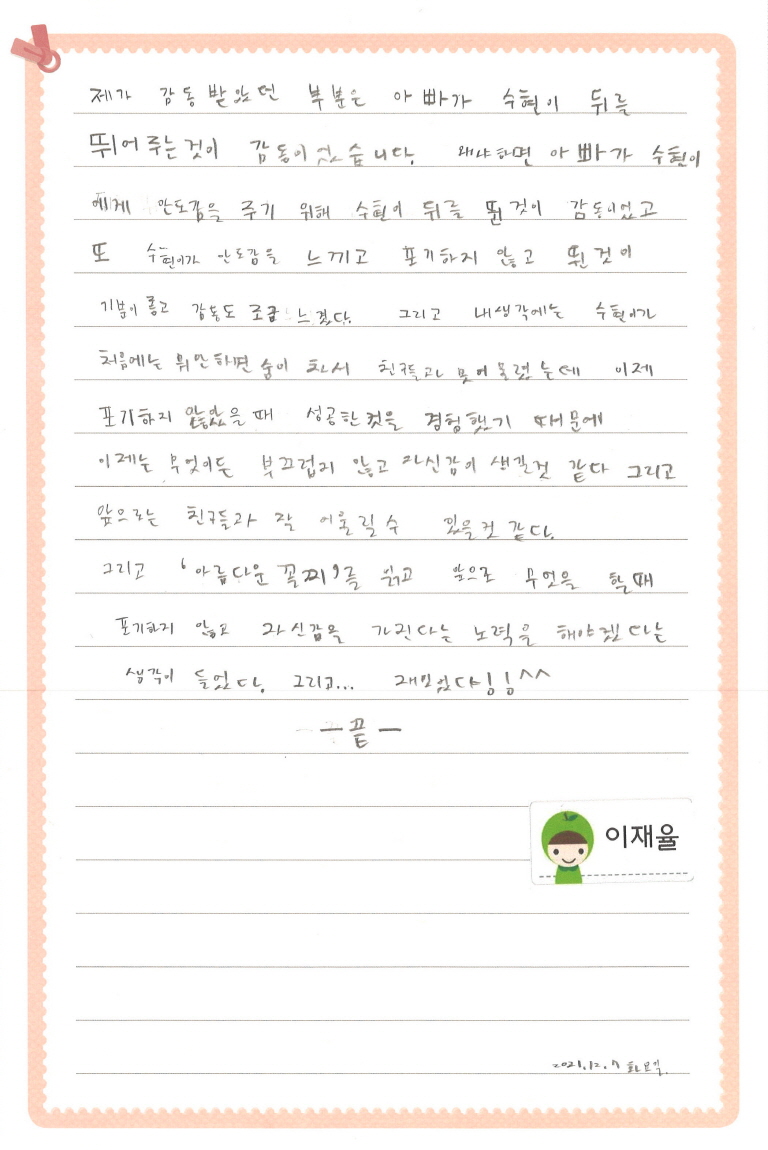 제가 감동 받았던 부분은 아빠가 수현이 뒤를
뛰어 주는것이 감동이었습니다. 왜냐하면 아빠가 수현이
에게 안도감을 주기 위해 수현이 뒤를 뛴것이 감동이었고
또 수현이가 안도감을 느끼고 포기하지 않고 뛴것이
기분이 좋고 감동도 조금 느꼈다. 그리고 내생각에는 수현이가
처음에는 뭐만하면 숨이 차서 친구들과 못어울렸는데 이제
포기하지 않았을때 성공한것을 경험했기 때문에
이제는 무엇이든 부끄럽지 않고 자신감이 생길것 같다 그리고
앞으로는 친구들과 잘 어울릴수 있을것 같다.
그리고 '아름다운 꼴찌'를 읽고 앞으로 무엇을 할때
포기하지 않고 자신감을 가진다는 노력을 해야겠다는
생각이 들었다. 그리고... 재미있다!!^^
-끝-
이재율
2021.12.7 화요일.